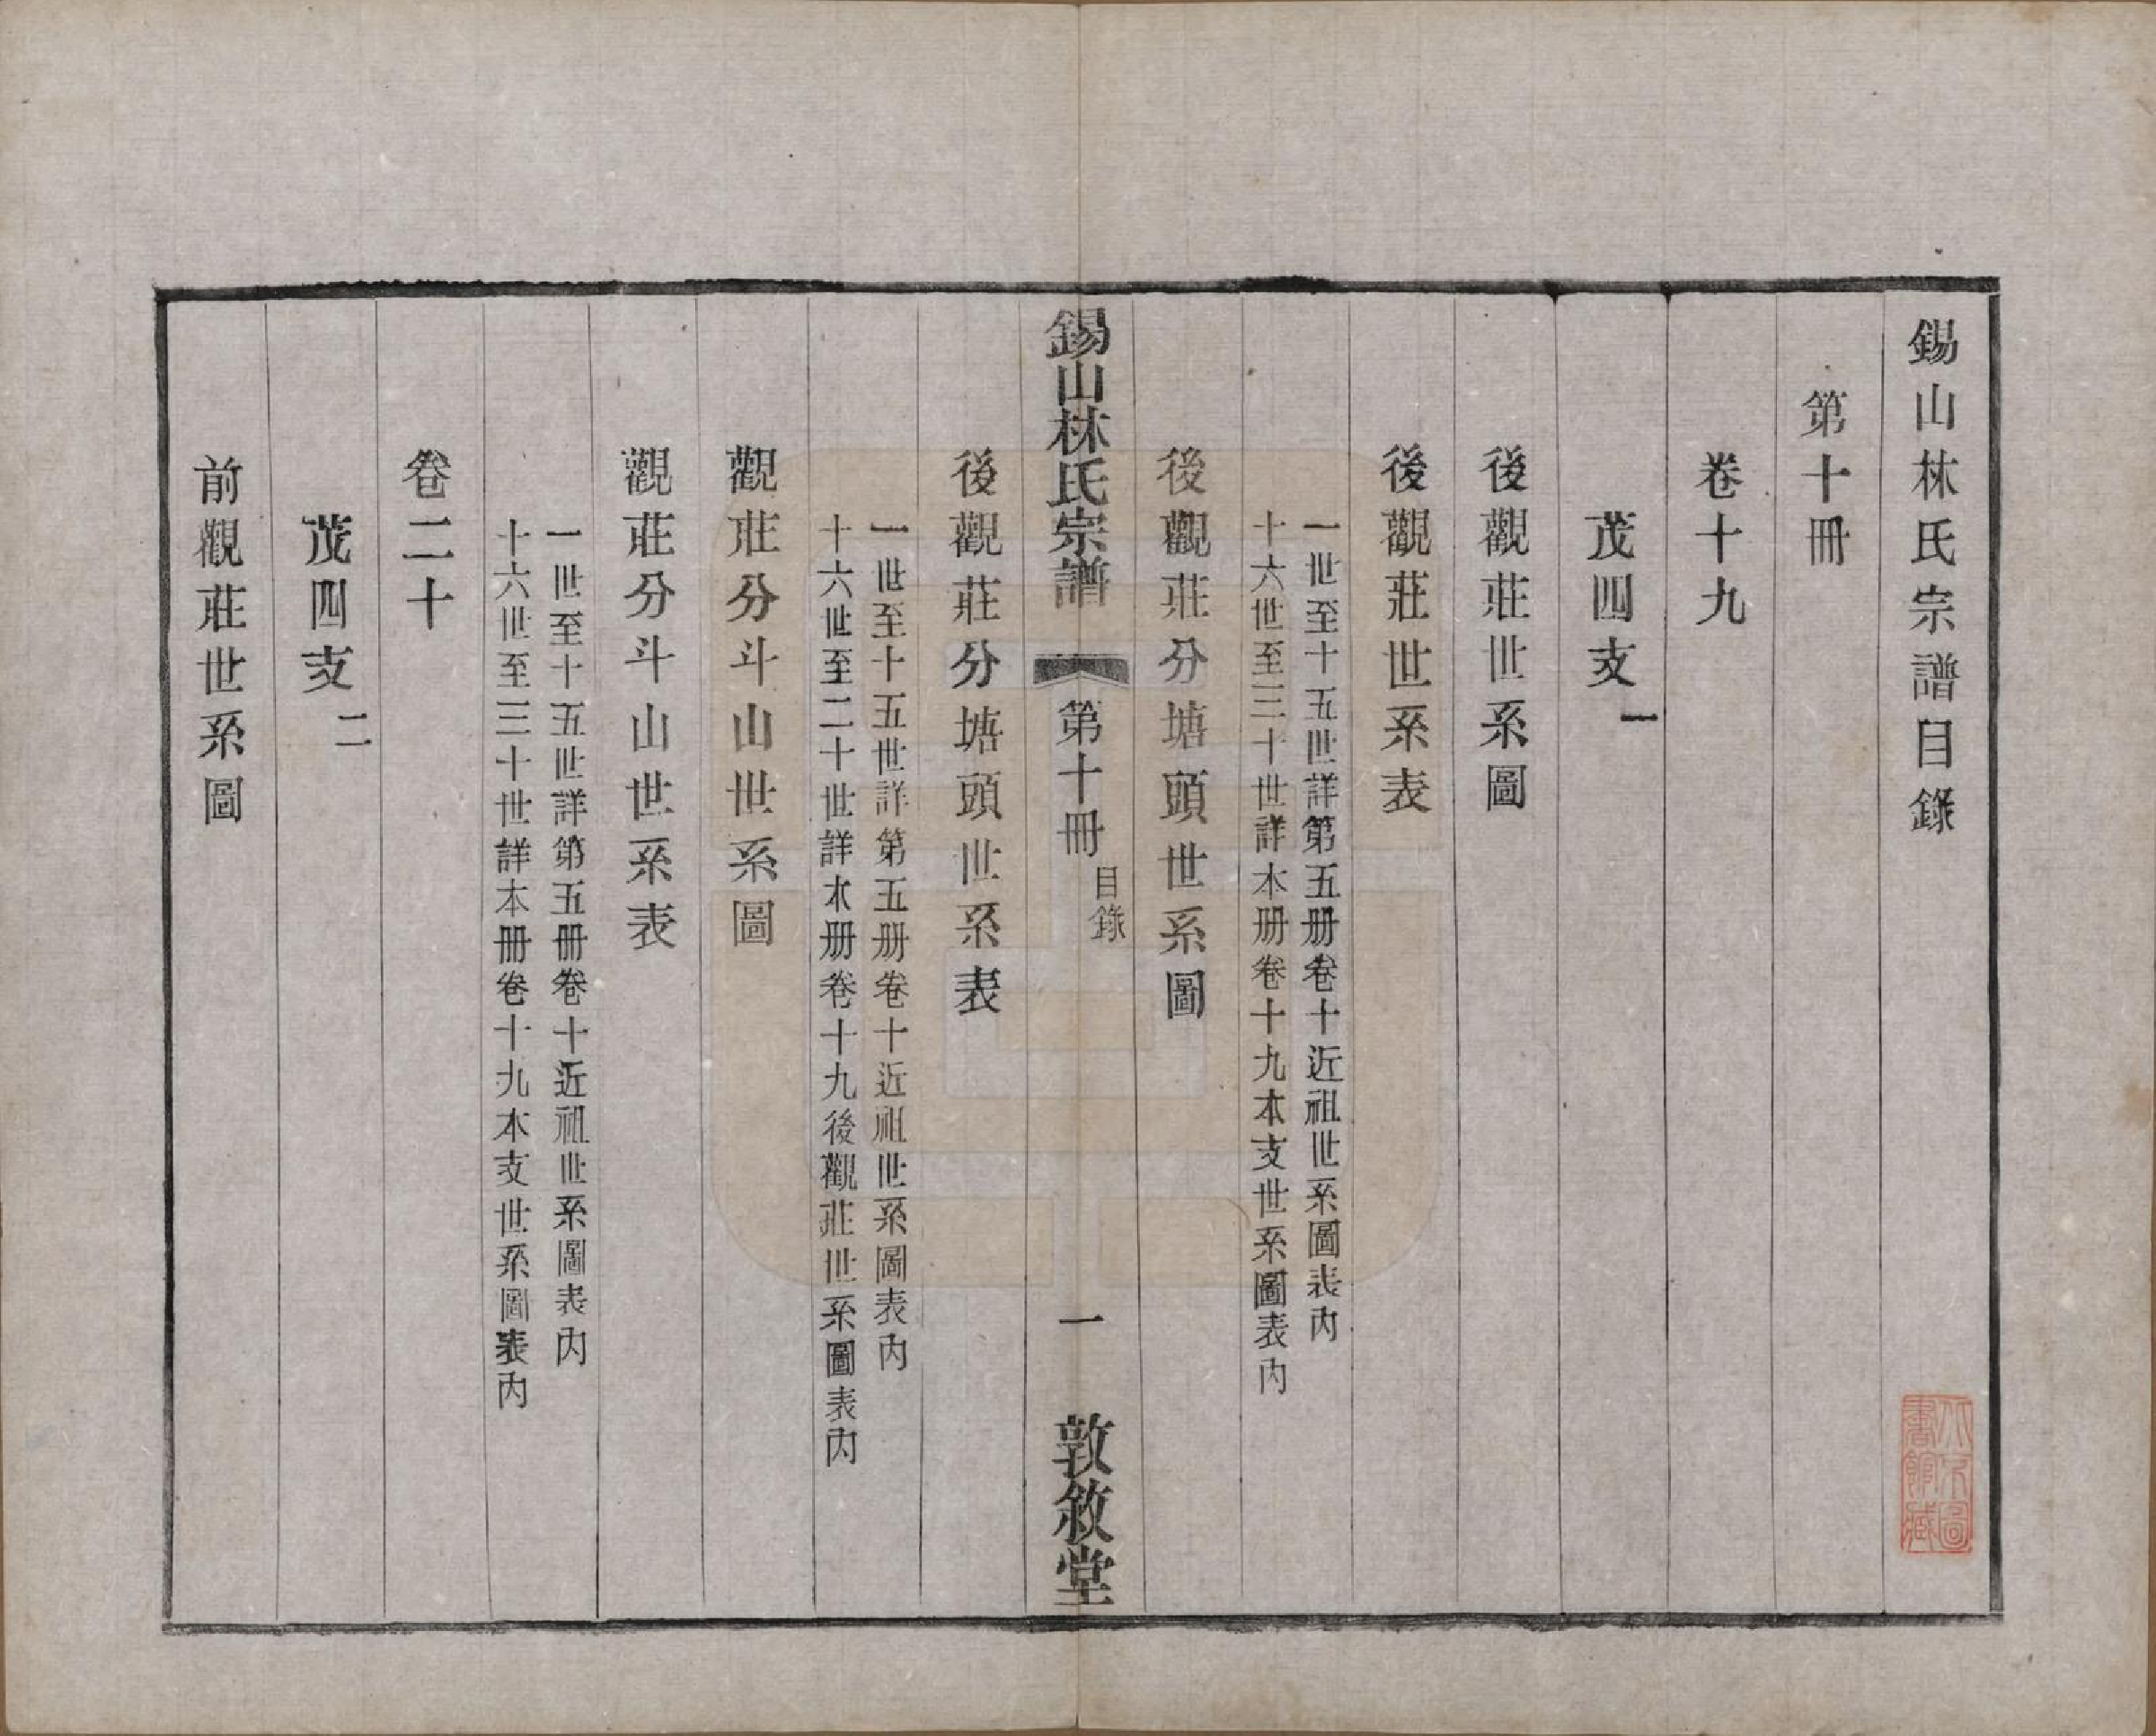 錫山林氏宗譜目錄
第十冊
卷十九
茂四支一
後觀莊世系圖
後觀莊世系表
一世至十五世詳第五册卷十近祖世系圖表內
十六世至三十世詳本册卷十九本支世系圖表內
後觀莊分塘頭世系圖
錫山林氏宗譜
第十冊
目錄
一
敦敘堂
後觀莊分塘頭世系表
一世至十五世詳第五册卷十近祖世系圖表內
十六世至二十世詳本册卷十九後觀莊世系圖表內
觀莊分斗山世系圖
觀莊分斗山世系表
一世至十五世詳第五冊卷十近祖世系圖表內
十六世至三十世詳本冊卷十九本支世系圖表內
卷二十
茂四支二
前觀莊世系圖